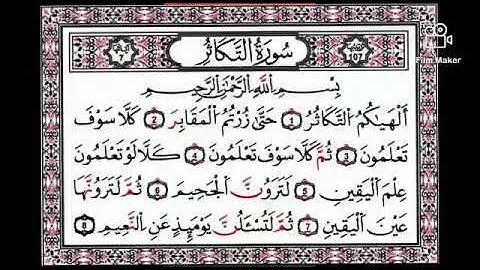 سُورَةُ التَّكَاثُرِ
107
7
Film Maker
بِسْمِ اللَّهِ الرَّحْمَٰنِ الرَّحِيمِ
أَلْهَيٰكُمُ التَّكَاثُرُ ① حَتَّىٰ زُرْتُمُ الْمَقَابِرَ ② كَلَّا سَوْفَ
تَعْلَمُونَ ③ ثُمَّ كَلَّا سَوْفَ تَعْلَمُونَ ④ كَلَّا لَوْ تَعْلَمُونَ
عِلْمَ الْيَقِينِ ⑤ لَتَرَوُنَّ الْجَحِيمَ ⑥ ثُمَّ لَتَرَوُنَّهَا
عَيْنَ الْيَقِينِ ⑦ ثُمَّ لَتُسْـَٔلُنَّ يَوْمَئِذٍ عَنِ النَّعِيمِ ⑧